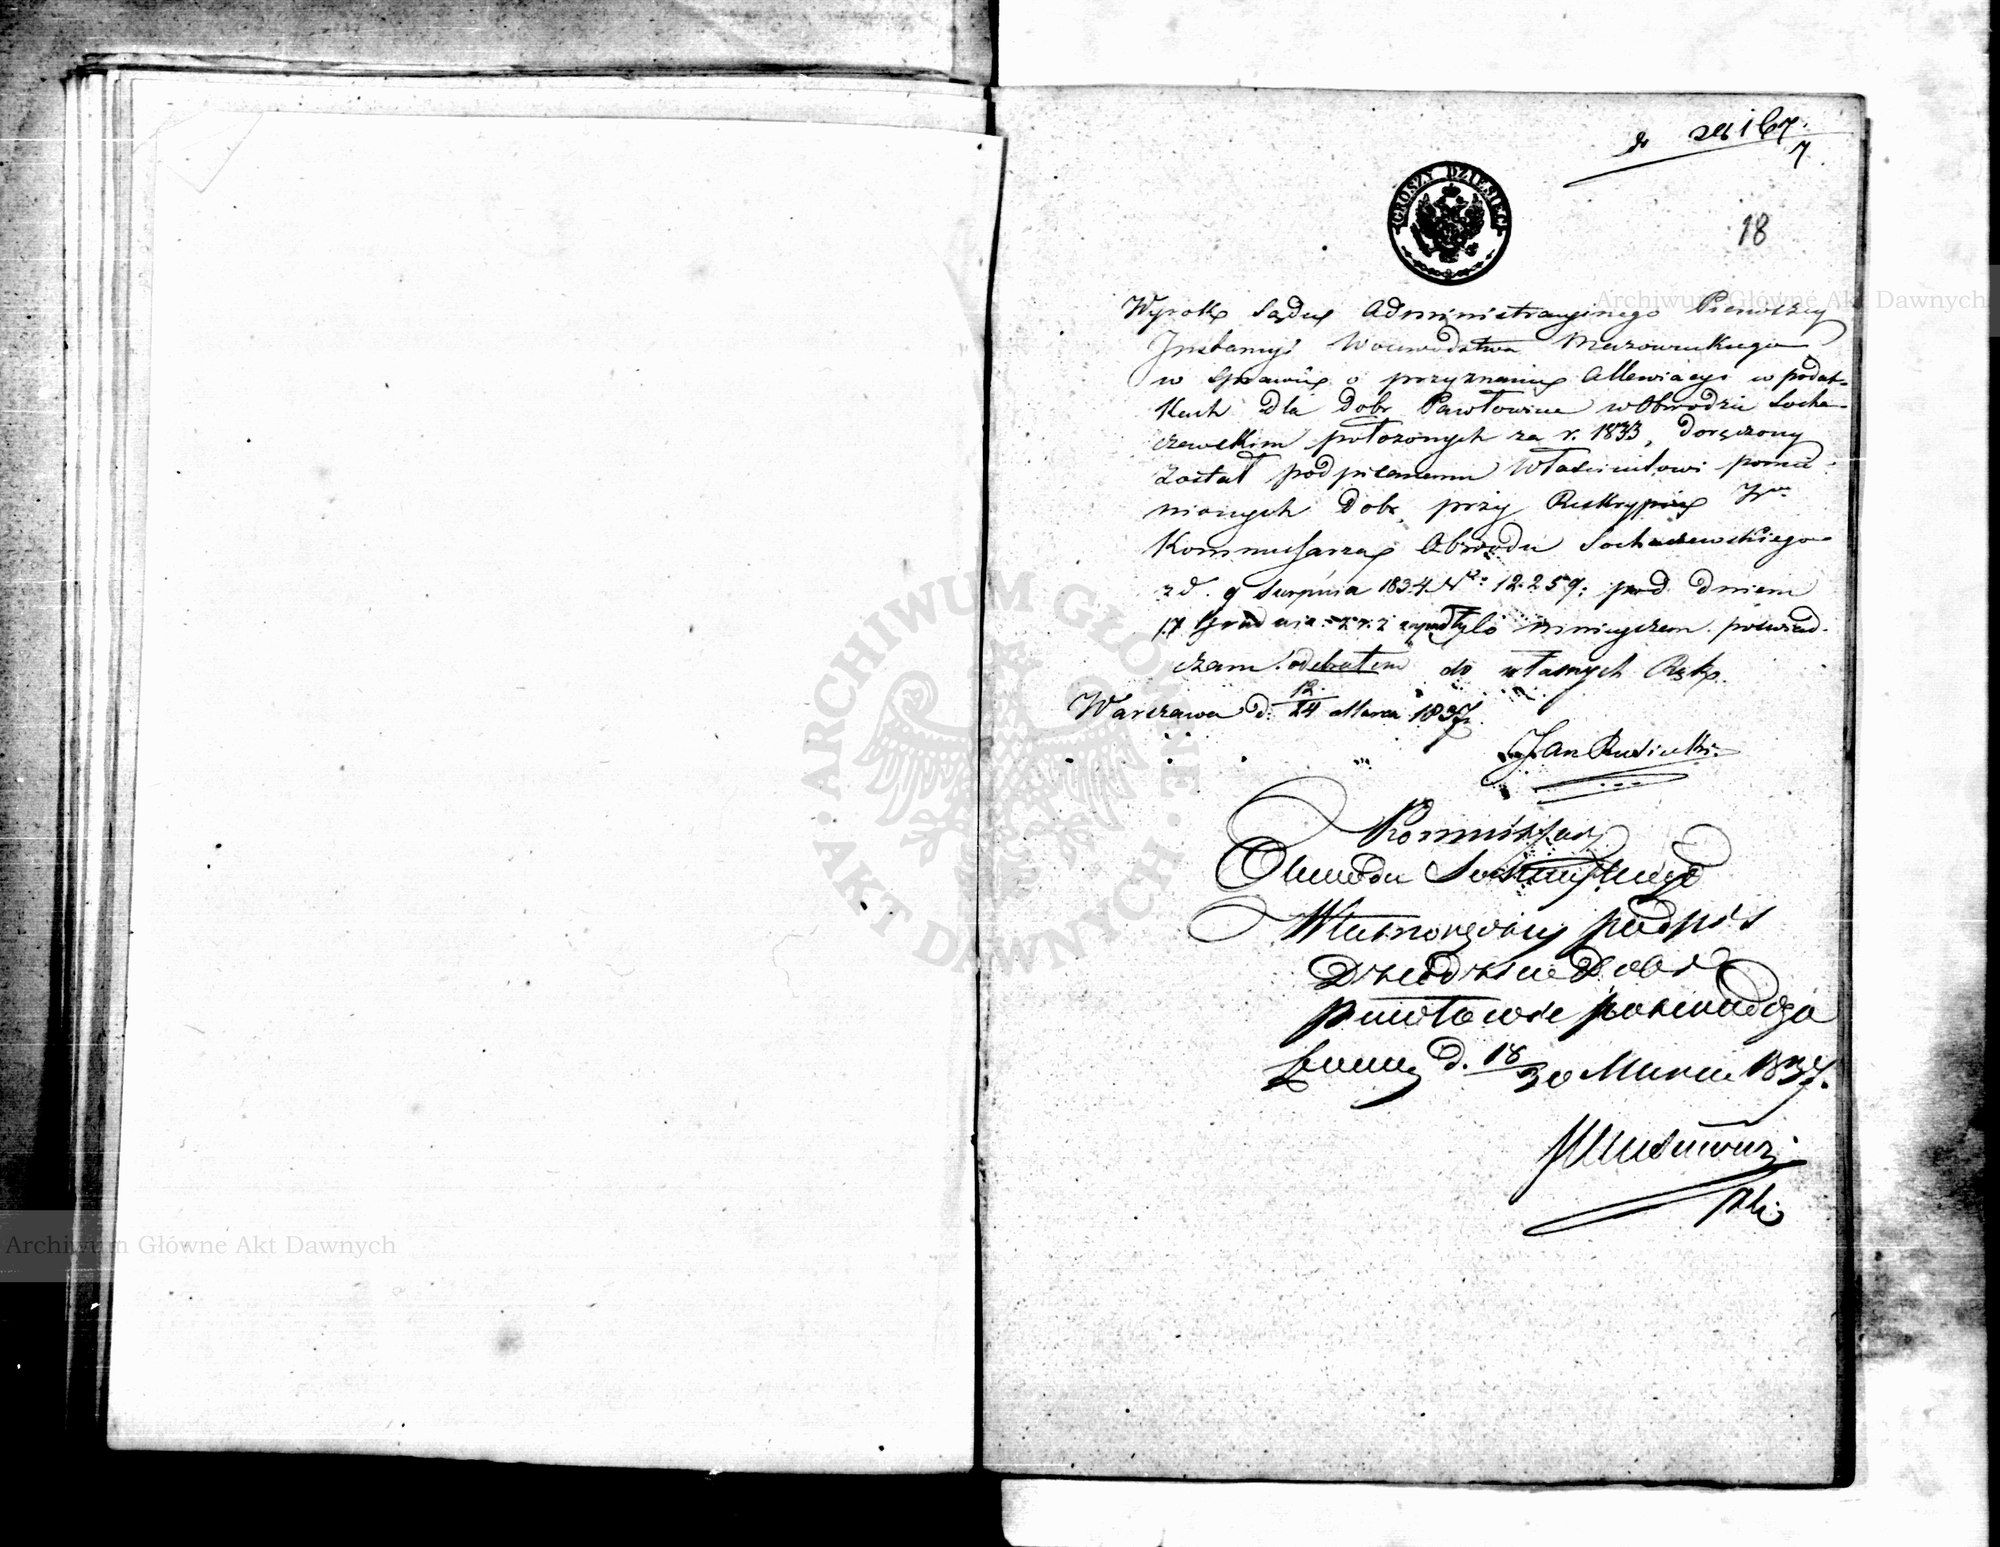 167
7
GROSZY DZIESIĘĆ
18
Wyrok Sądu Administracyinego Pierwszey
Instancyi Woiewodztwa Mazowieckiego
w sprawie o przyznanie Allewiacyi w podat-
kach dla Dobr Pawłowice w Obwodzie Socha-
czewskim położonych za r. 1833, doręczony
został podpisanemu Właścicielowi pomie-
nionych Dobr, przy Reskrypcie
Kommissarza Obwodu Sochaczewskiego
z d. 9 Sierpnia 1834 No 12.259; pod dniem
17 Grudnia niniejszem poświad-
czam. odebrałem do własnych Rąk.
Warszawa d. 12/24 Marca 1837
Jan Rudnicki
Kommissarz
Obwodu Sochaczewskiego
Własnoręczny podpis
Dziedzica Dobr
Pawłowice poświadcza
d. 18/30 Marca 1837.
Archiwum Główne Akt Dawnych
Archiwum Główne Akt Dawnych
ARCHIWUM GŁÓWNE · AKT DAWNYCH ·